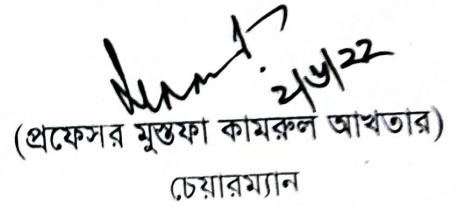 (প্রফেসর মুস্তফা কামরুল আখতার)
চেয়ারম্যান